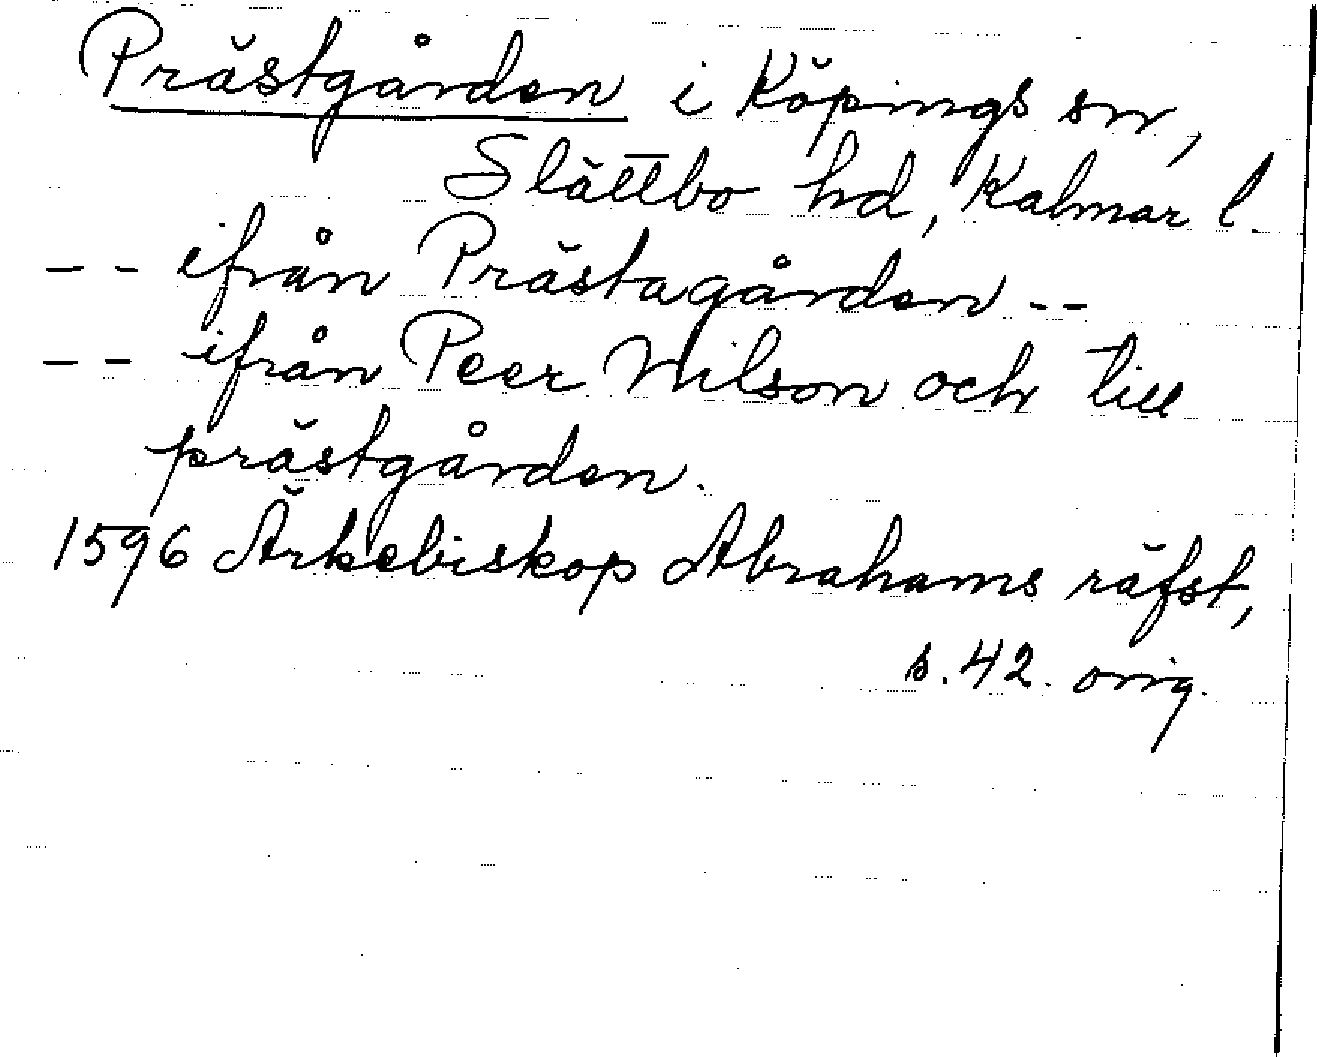 Prästgården i Köpings sn,
Slättbo hd, Kalmar l.
-- ifrån Prästagården --
-- ifrån Peer Nilson och till
prästgården.
1596 Ärkebiskop Abrahams räfst,
s. 42. orig.